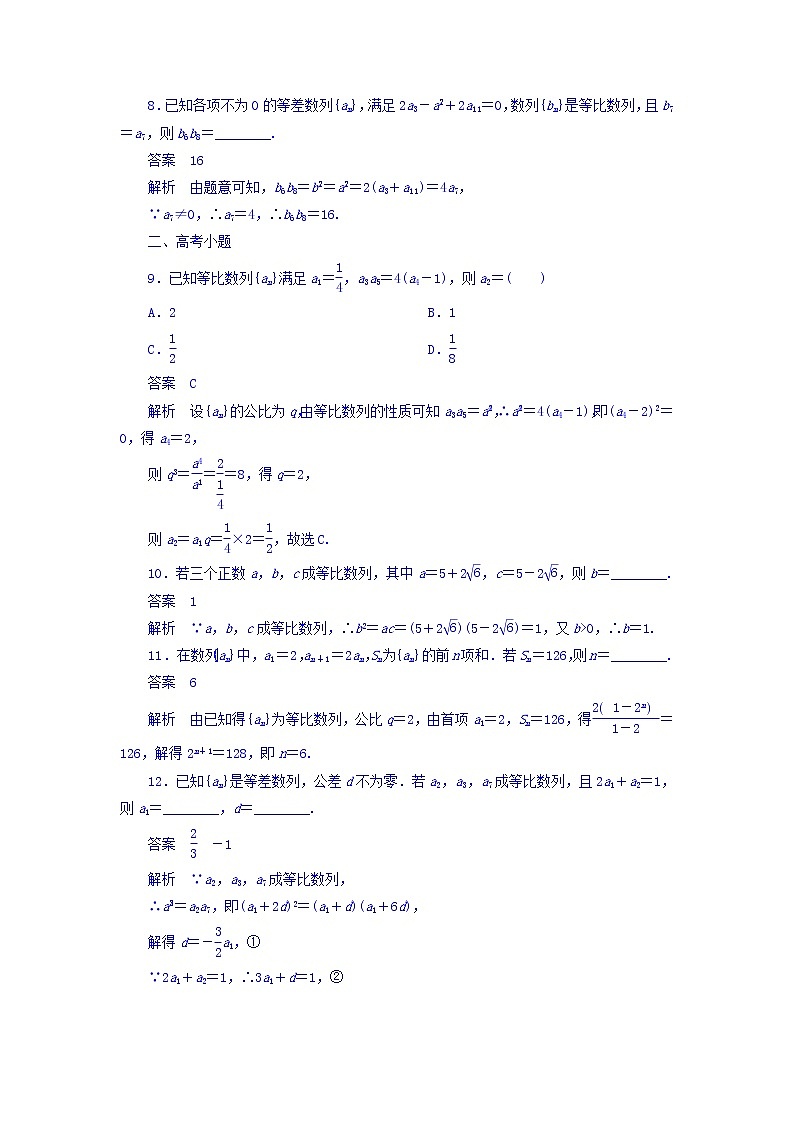 8.已知各项不为0的等差数列{aₙ},满足2a₃-a²+2a₁₁=0,数列{bₙ}是等比数列,且b₇
=a₇,则b₆b₈=________.
答案 16
解析 由题意可知,b₆b₈=b²=a²=2(a₃+a₁₁)=4a₇,
∵a₇≠0,∴a₇=4,∴b₆b₈=16.
二、高考小题
9.已知等比数列{aₙ}满足a₁=1/4,a₃a₅=4(a₄-1),则a₂=( )
A.2 B.1
C.1/2 D.1/8
答案 C
解析 设{aₙ}的公比为q,由等比数列的性质可知a₃a₅=a²,∴a²=4(a₄-1),即(a₄-2)²=
0,得a₄=2,
则q³=a⁴/a¹=2/(1/4)=8,得q=2,
则a₂=a₁q=1/4×2=1/2,故选C.
10.若三个正数a,b,c成等比数列,其中a=5+2√6,c=5-2√6,则b=________.
答案 1
解析 ∵a,b,c成等比数列,∴b²=ac=(5+2√6)(5-2√6)=1,又b>0,∴b=1.
11.在数列{aₙ}中,a₁=2,aₙ₊₁=2aₙ,Sₙ为{aₙ}的前n项和.若Sₙ=126,则n=________.
答案 6
解析 由已知得{aₙ}为等比数列,公比q=2,由首项a₁=2,Sₙ=126,得2(1-2ⁿ)/(1-2)=
126,解得2ⁿ⁺¹=128,即n=6.
12.已知{aₙ}是等差数列,公差d不为零.若a₂,a₃,a₇成等比数列,且2a₁+a₂=1,
则a₁=________,d=________.
答案 2/3 -1
解析 ∵a₂,a₃,a₇成等比数列,
∴a²=a₂a₇,即(a₁+2d)²=(a₁+d)(a₁+6d),
解得d=-3/2a₁,①
∵2a₁+a₂=1,∴3a₁+d=1,②